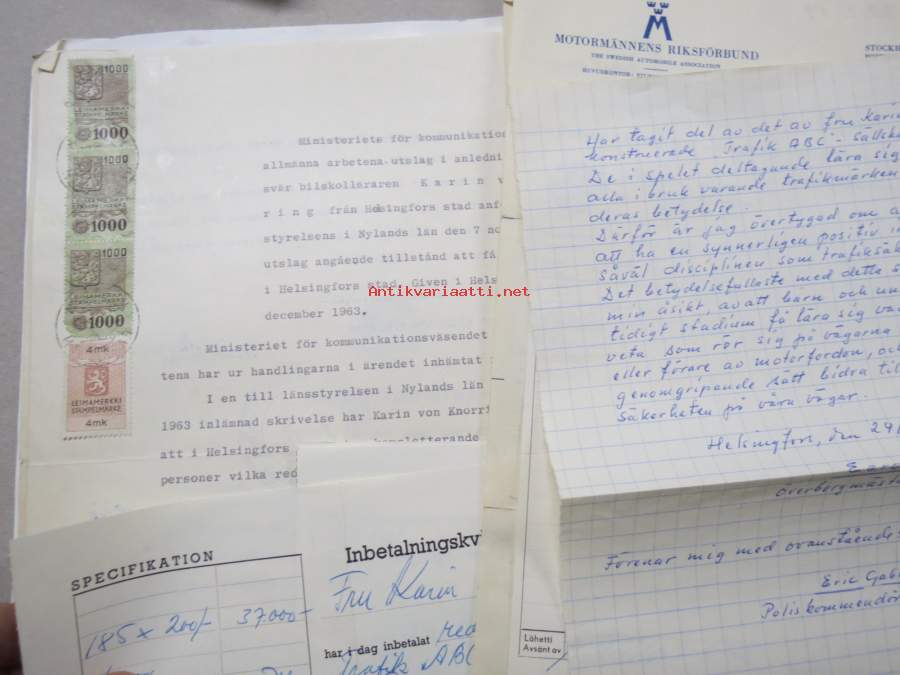 1000
LEIMAMERKKI
STÄMPELMÄRKE
1000
1000
LEIMAMERKKI
STÄMPELMÄRKE
1000
1000
LEIMAMERKKI
STÄMPELMÄRKE
1000
4mk
LEIMAMERKKI
STÄMPELMÄRKE
4mk
Ministeriets för kommunikatio
allmänna arbetena utslag i anledni
svär bilskolläraren K a r i n v
r i n g från Helsingfors stad anf
styrelsens i Nylands län den 7 no
utslag angående tillstånd att få
i Helsingfors stad. Given i Hels
december 1963.
Ministeriet för kommunikationsväsendet
tena har ur handlingarna i ärendet inhäntat
I en till länsstyrelsen i Nylands län
1963 inlämnad skrivelse har Karin von Knorr
att i Helsingfors
personer vilka red
Antikvariaatti.net
M
MOTORMÄNNENS RIKSFÖRBUND
THE SWEDISH AUTOMOBILE ASSOCIATION
HUVUDKONTOR:
STOCKH
Har tagit del av det av fru Karin
konstruerade Trafik ABC - sällsk
De i spelet deltagande lära sig
alla i bruk varande trafikmärken
deras betydelse.
Därför är jag övertygad om a
att ha en synnerligen positiv in
såväl disciplinen som trafiksäk
Det betydelsefullaste med detta s
min åsikt, av att barn och un
tidigt stadium få lära sig va
veta som rör sig på vägarna
eller förare av motorfordon, oc
genomgripande sätt bidra til
säkerheten på våra vägar.
Helsingfors, den 29
Överbergmäst
Förenar mig med ovanstående
Eric Gab
Poliskommendör
SPECIFIKATION
185 x 200/- 37.000-
Inbetalningskv
Fru Karin
har i dag inbetalat
Trafik ABC
Lähetti
Avsänt av